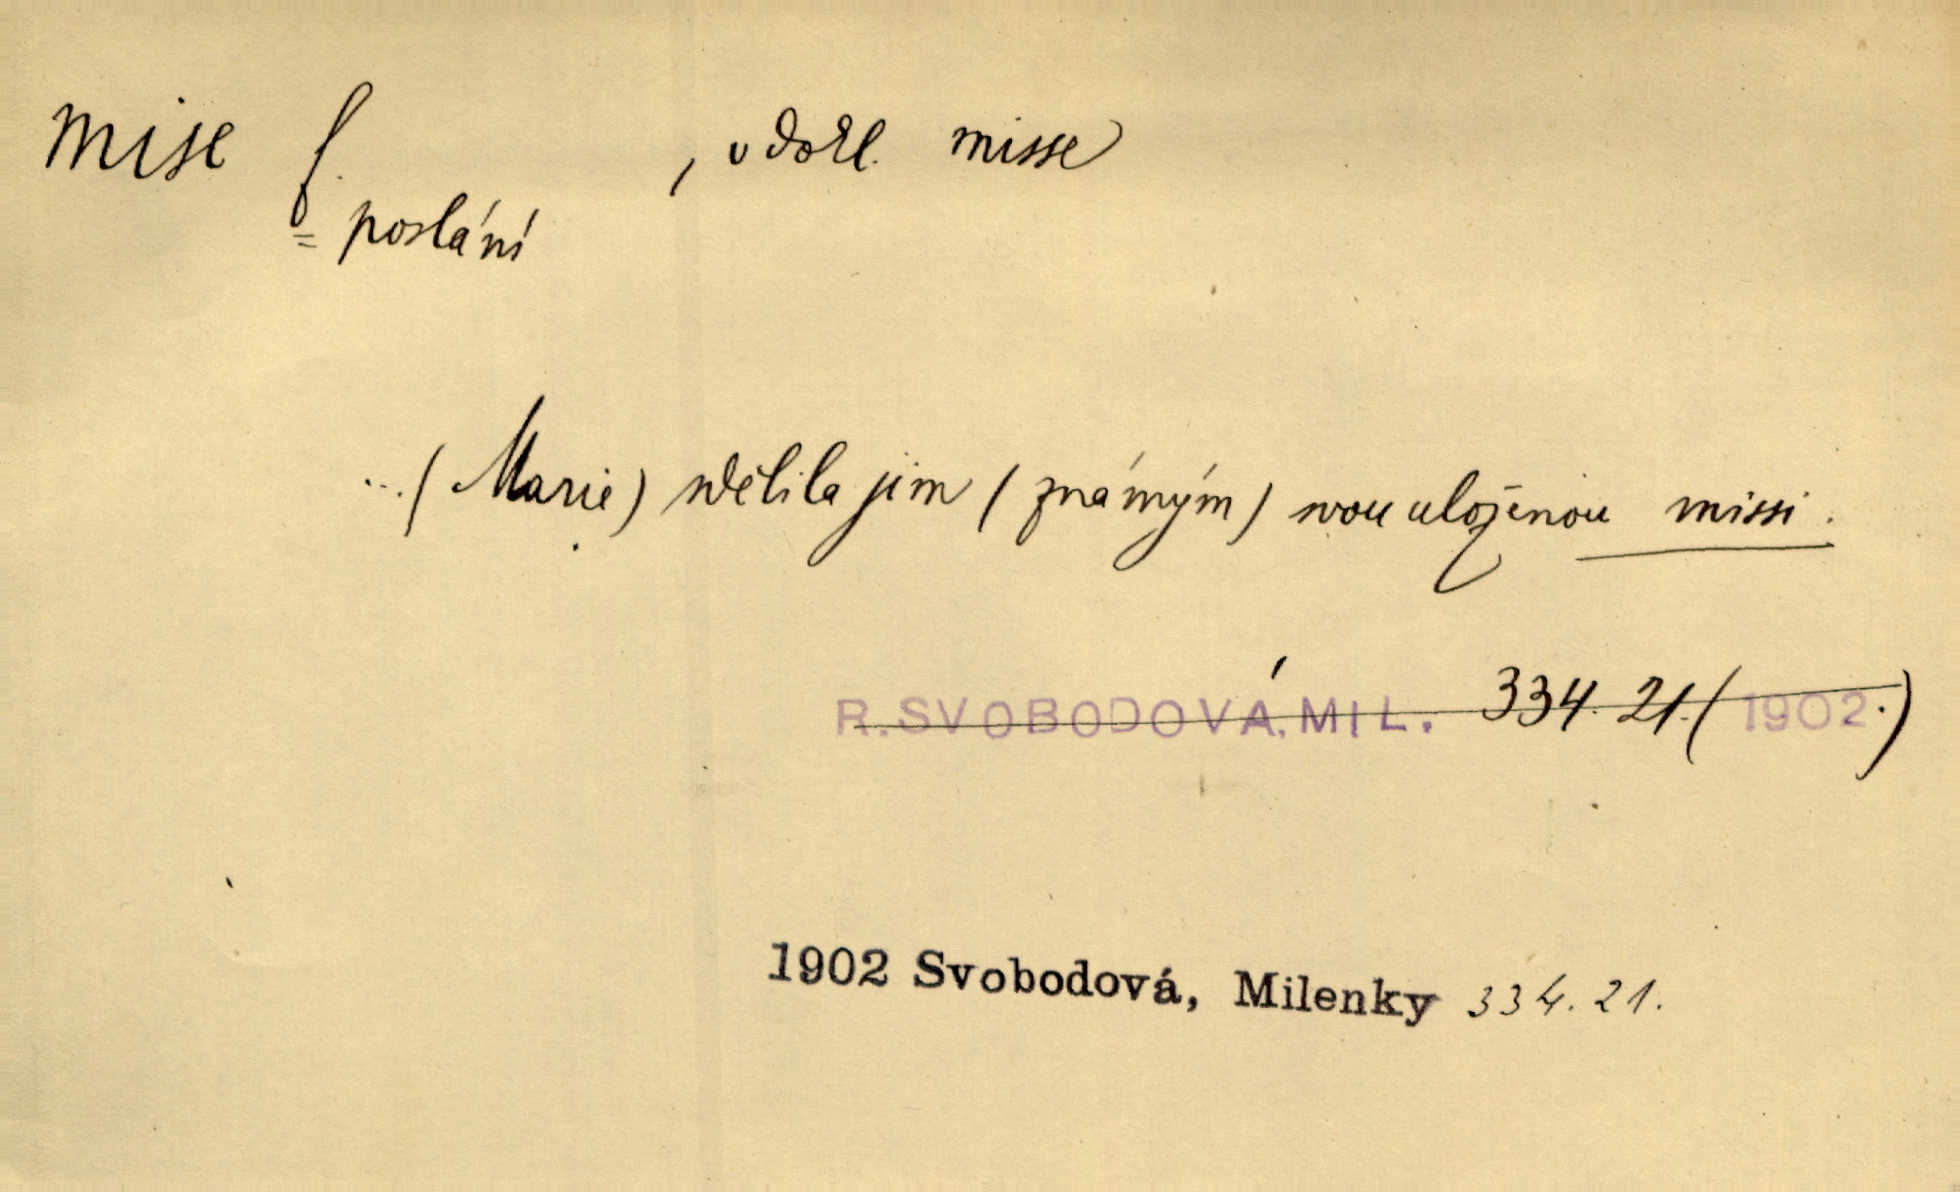 mise f. , v dokl. misse
= poslání
...(Marie) sdělila jim (známým) svou uloženou missi.
R. SVOBODOVÁ, MIL. 334. 21. (1902.)
1902 Svobodová, Milenky 334. 21.